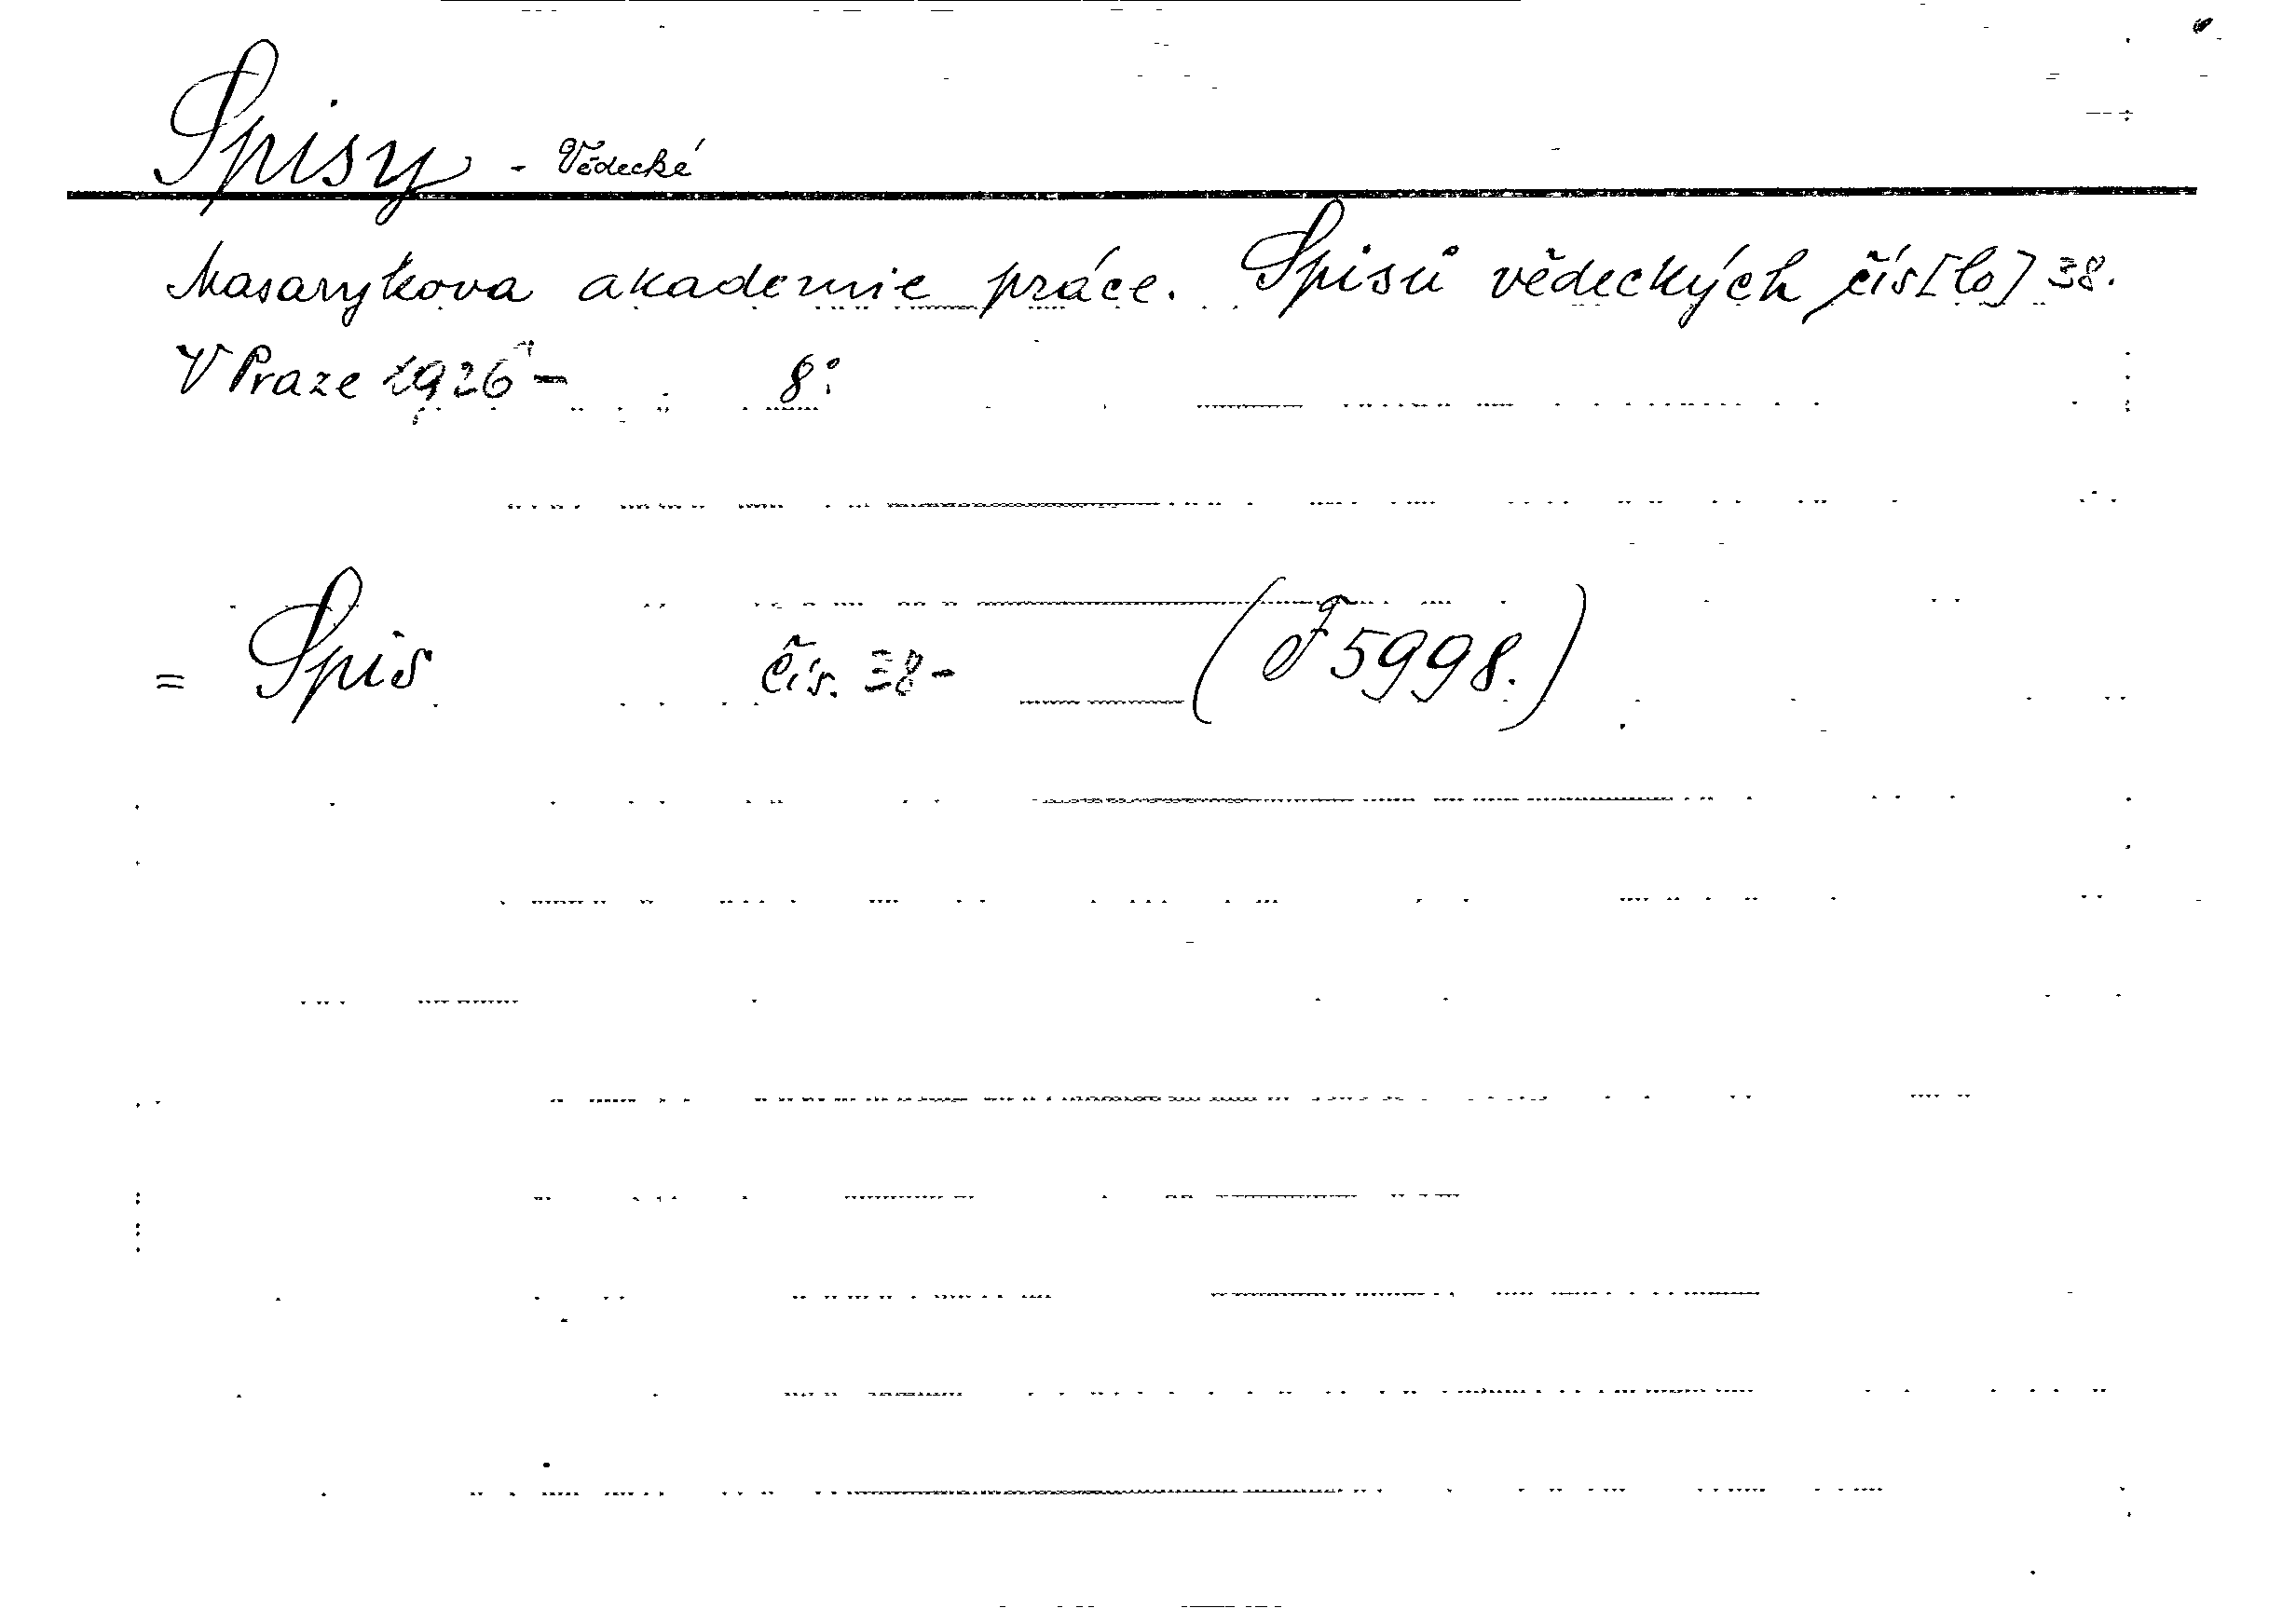 Spisy - Vědecké
Masarykova akademie práce. Spisů vědeckých čís[lo] 38.
V Praze 1926 - 8°.
= Spis čís. 38 - (F 5998.)